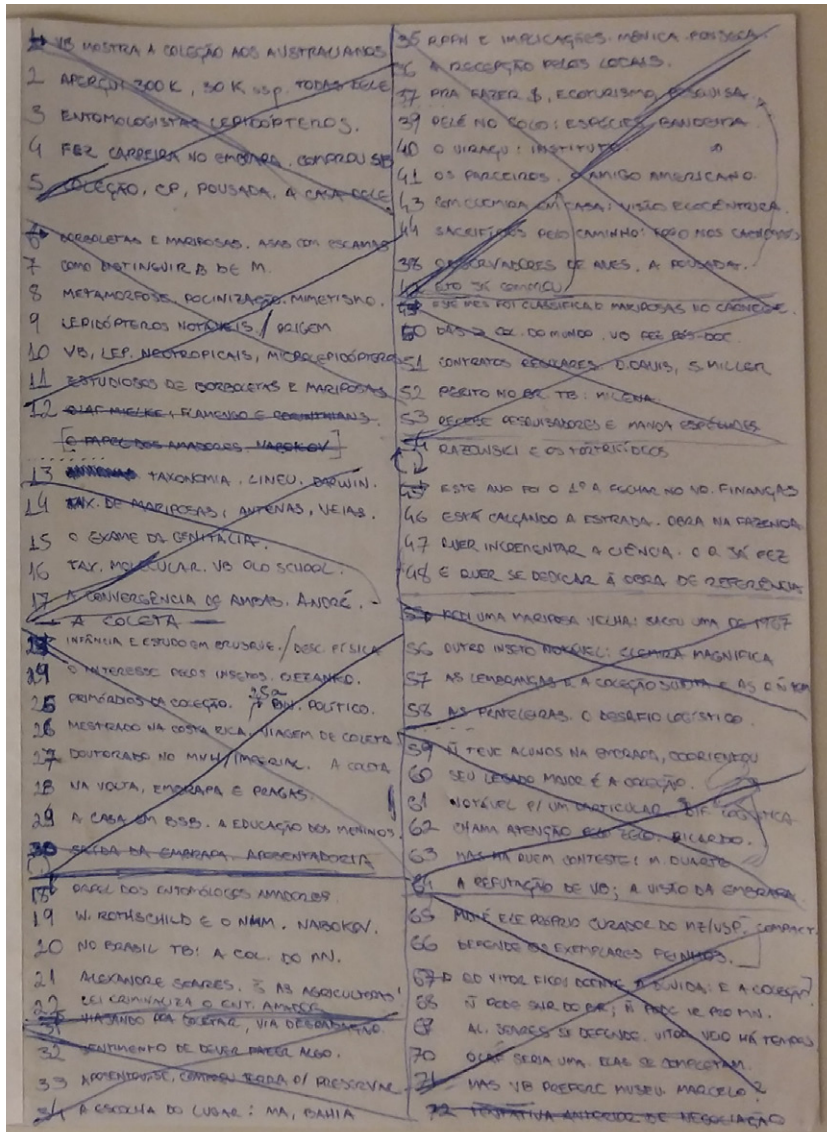 1 VB MOSTRA A COLEÇÃO AOS AUSTRALIANOS
2 APERÇU: 300 K, 30 K ssp. TODAS DELE
3 ENTOMOLOGISTAS LEPIDÓPTEROS.
4 FEZ CARREIRA NO EMBRAPA. COMPROU
5 COLEÇÃO, CP, POUSADA. A CASA DELE
6 BORBOLETAS E MARIPOSAS. ASAS COM ESCAMAS
7 COMO DISTINGUIR B DE M.
8 METAMORFOSE. POLINIZAÇÃO. MIMETISMO.
9 LEPIDÓPTEROS NOTÁVEIS. / ORIGEM
10 VB, LEP. NEOTROPICAIS, MICROLEPIDÓPTEROS
11 ESTUDIOSOS DE BORBOLETAS E MARIPOSAS
12 OLAF MIELKE, FLAMENGO E CORINTHIANS.
[O PAPEL DOS AMADORES. NABOKOV]
13 TAXONOMIA. LINEU. DARWIN.
14 TAX. DE MARIPOSAS: ANTENAS, VEIAS.
15 O EXAME DA GENITÁLIA.
16 TAX. MOLECULAR. VB OLD SCHOOL.
17 A CONVERGÊNCIA DE AMBAS. ANDRÉ.
— A COLETA —
23 INFÂNCIA E ESTUDO EM BRUSQUE. / DESC. FÍSICA
24 O INTERESSE PELOS INSETOS.
25 PRIMÓRDIOS DA COLEÇÃO. 25a POLÍTICO.
26 MESTRADO NA COSTA RICA, VIAGEM DE COLETA
27 DOUTORADO NO IMPERIAL. A COLETA
28 NA VOLTA, EMBRAPA E PRAGAS.
29 A CASA EM BSB. A EDUCAÇÃO DOS MENINOS.
30 SAÍDA DA EMBRAPA. APOSENTADORIA
18 PAPEL DOS ENTOMÓLOGOS AMADORES.
19 W. ROTHSCHILD E O NHM. NABOKOV.
20 NO BRASIL TB: A COL. DO MN.
21 ALEXANDRE SOARES. AS AGRICULTORAS!
22 LEI CRIMINALIZA O ENT. AMADOR
31 VIAJANDO PRA COLETAR, VIA DEGRADAÇÃO.
32 SENTIMENTO DE DEVER FAZER ALGO.
33 APOSENTOU-SE, COMPROU TERRA P/ PRESERVAR
34 A ESCOLHA DO LUGAR: MA, BAHIA
35 RPPN E IMPLICAÇÕES. MÔNICA FONSECA.
36 A RECEPÇÃO PELOS LOCAIS.
37 PRA FAZER $, ECOTURISMO, PESQUISA.
39 PELÉ NO COLO: ESPÉCIES BANDEIRA
40 O UIRAÇU: INSTITUTO
41 OS PARCEIROS. O AMIGO AMERICANO.
43 EM CASA: VISÃO ECOCÊNTRICA.
44 SACRIFÍCIOS PELO CAMINHO: FOGO NOS CACHORROS
38 OBSERVADORES DE AVES. A POUSADA.
42 ELO SÁ
49 ESSE MÊS FOI CLASSIFICAR MARIPOSAS NO CARNEGIE.
50 DAS COL. DO MUNDO. VB FEZ PÓS-DOC.
51 CONTATOS REGULARES. D. DAVIS, S. MILLER
52 PERITO NO BR TB: MILENA.
53 RECEBE PESQUISADORES E MANDA ESPÉCIMES
54 RAZOWSKI E OS TORTRICÍDEOS
45 ESTE ANO FOI O 1º A FECHAR NO VD. FINANÇAS
46 ESTÁ CALÇANDO A ESTRADA. OBRA NA FAZENDA
47 QUER INCREMENTAR A CIÊNCIA. O Q JÁ FEZ
48 E QUER SE DEDICAR À OBRA DE REFERÊNCIA
55 UMA MARIPOSA VELHA: SACOU UMA DE 1967
56 OUTRO INSETO NOTÁVEL: MAGNIFICA
57 AS LEMBRANÇAS E A COLEÇÃO E AS Q Ñ TEM
58 AS PRATELEIRAS. O DESAFIO LOGÍSTICO.
59 Ñ TEVE ALUNOS NA EMBRAPA, COORIENTOU
60 SEU LEGADO MAIOR É A COLEÇÃO.
61 NOTÁVEL P/ UM PARTICULAR. DIF. LOGÍSTICA
62 CHAMA ATENÇÃO PELO ZELO. RICARDO.
63 MAS HÁ QUEM CONTESTE: M. DUARTE
64 A REPUTAÇÃO DE VB; A VISÃO DA EMBRAPA.
65 ELE PRÓPRIO CURADOR DO MZ/USP. COMPACT.
66 DEFENDE OS EXEMPLARES FEINHOS.
67 QD VITOR FICOU DOENTE A DÚVIDA: E A COLEÇÃO?
68 Ñ PODE SAIR DO BR; Ñ PODE IR PRO MN.
69 AL. SOARES SE DEFENDE. VITOR VEIO HÁ TEMPOS
70 OLAF SERIA UMA. ELAS SE COMPLETAM.
71 MAS VB PREFERE MUSEU. MARCELO?
72 TENTATIVA ANTERIOR DE NEGOCIAÇÃO